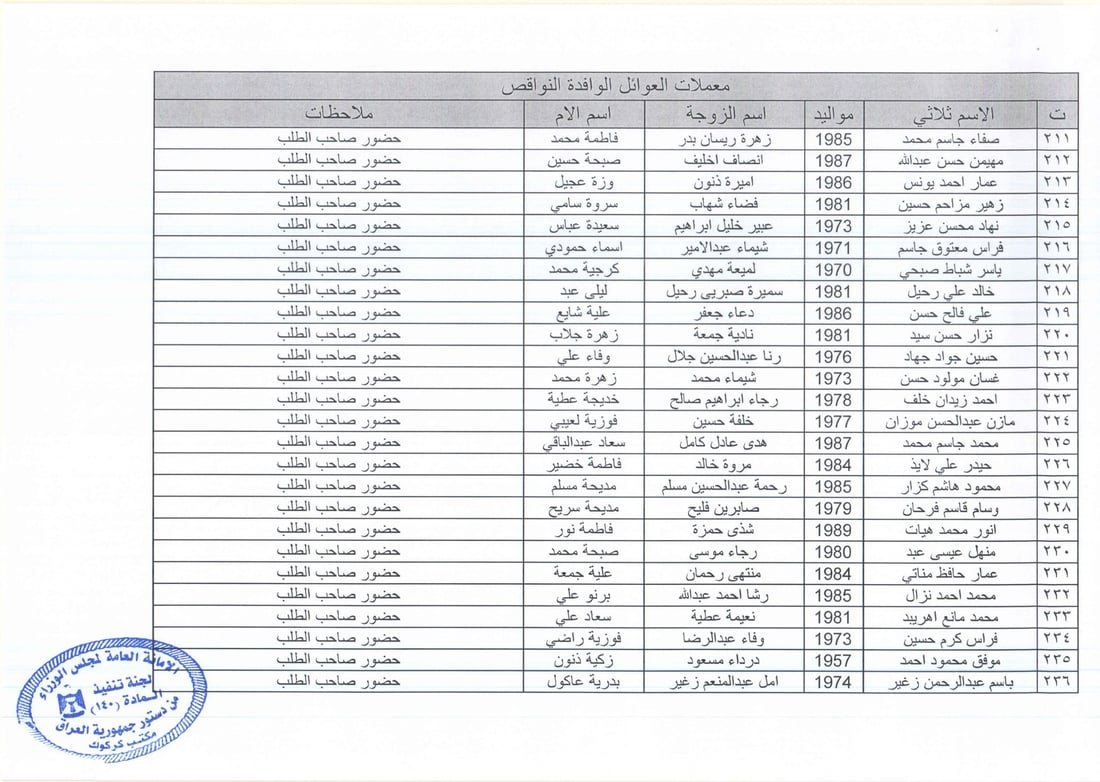 معملات العوائل الوافدة النواقص
ت الاسم ثلاثي مواليد اسم الزوجة اسم الام ملاحظات
٢١١ صفاء جاسم محمد 1985 زهرة ريسان بدر فاطمة محمد حضور صاحب الطلب
٢١٢ مهيمن حسن عبدالله 1987 انصاف اخليف صبحة حسين حضور صاحب الطلب
٢١٣ عمار احمد يونس 1986 اميرة ذنون وزة عجيل حضور صاحب الطلب
٢١٤ زهير مزاحم حسين 1981 فضاء شهاب سروة سامي حضور صاحب الطلب
٢١٥ نهاد محسن عزيز 1973 عبير خليل ابراهيم سعيدة عباس حضور صاحب الطلب
٢١٦ فراس معتوق جاسم 1971 شيماء عبدالامير اسماء حمودي حضور صاحب الطلب
٢١٧ ياسر شباط صبحي 1970 لميعة مهدي كرجية محمد حضور صاحب الطلب
٢١٨ خالد علي رحيل 1981 سميرة صبريى رحيل ليلى عبد حضور صاحب الطلب
٢١٩ علي فالح حسن 1986 دعاء جعفر علية شايع حضور صاحب الطلب
٢٢٠ نزار حسن سيد 1981 نادية جمعة زهرة جلاب حضور صاحب الطلب
٢٢١ حسين جواد جهاد 1976 رنا عبدالحسين جلال وفاء علي حضور صاحب الطلب
٢٢٢ غسان مولود حسن 1973 شيماء محمد زهرة محمد حضور صاحب الطلب
٢٢٣ احمد زيدان خلف 1978 رجاء ابراهيم صالح خديجة عطية حضور صاحب الطلب
٢٢٤ مازن عبدالحسن موزان 1977 خلفة حسين فوزية لعيبي حضور صاحب الطلب
٢٢٥ محمد جاسم محمد 1987 هدى عادل كامل سعاد عبدالباقي حضور صاحب الطلب
٢٢٦ حيدر علي لايذ 1984 مروة خالد فاطمة خضير حضور صاحب الطلب
٢٢٧ محمود هاشم كزار 1985 رحمة عبدالحسين مسلم مديحة مسلم حضور صاحب الطلب
٢٢٨ وسام قاسم فرحان 1979 صابرين فليح مديحة سريح حضور صاحب الطلب
٢٢٩ انور محمد هيات 1989 شذى حمزة فاطمة نور حضور صاحب الطلب
٢٣٠ منهل عيسى عبد 1980 رجاء موسى صبحة محمد حضور صاحب الطلب
٢٣١ عمار حافظ مناتي 1984 منتهى رحمان علية جمعة حضور صاحب الطلب
٢٣٢ محمد احمد نزال 1985 رشا احمد عبدالله برنو علي حضور صاحب الطلب
٢٣٣ محمد مانع اهريبد 1981 نعيمة عطية سعاد علي حضور صاحب الطلب
٢٣٤ فراس كرم حسين 1973 وفاء عبدالرضا فوزية راضي حضور صاحب الطلب
٢٣٥ موفق محمود احمد 1957 درداء مسعود زكية ذنون حضور صاحب الطلب
٢٣٦ باسم عبدالرحمن زغير 1974 امل عبدالمنعم زغير بدرية عاكول حضور صاحب الطلب
الامانة العامة لمجلس الوزراء
لجنة تنفيذ
المادة (١٤٠)
من دستور جمهورية العراق
مكتب كركوك